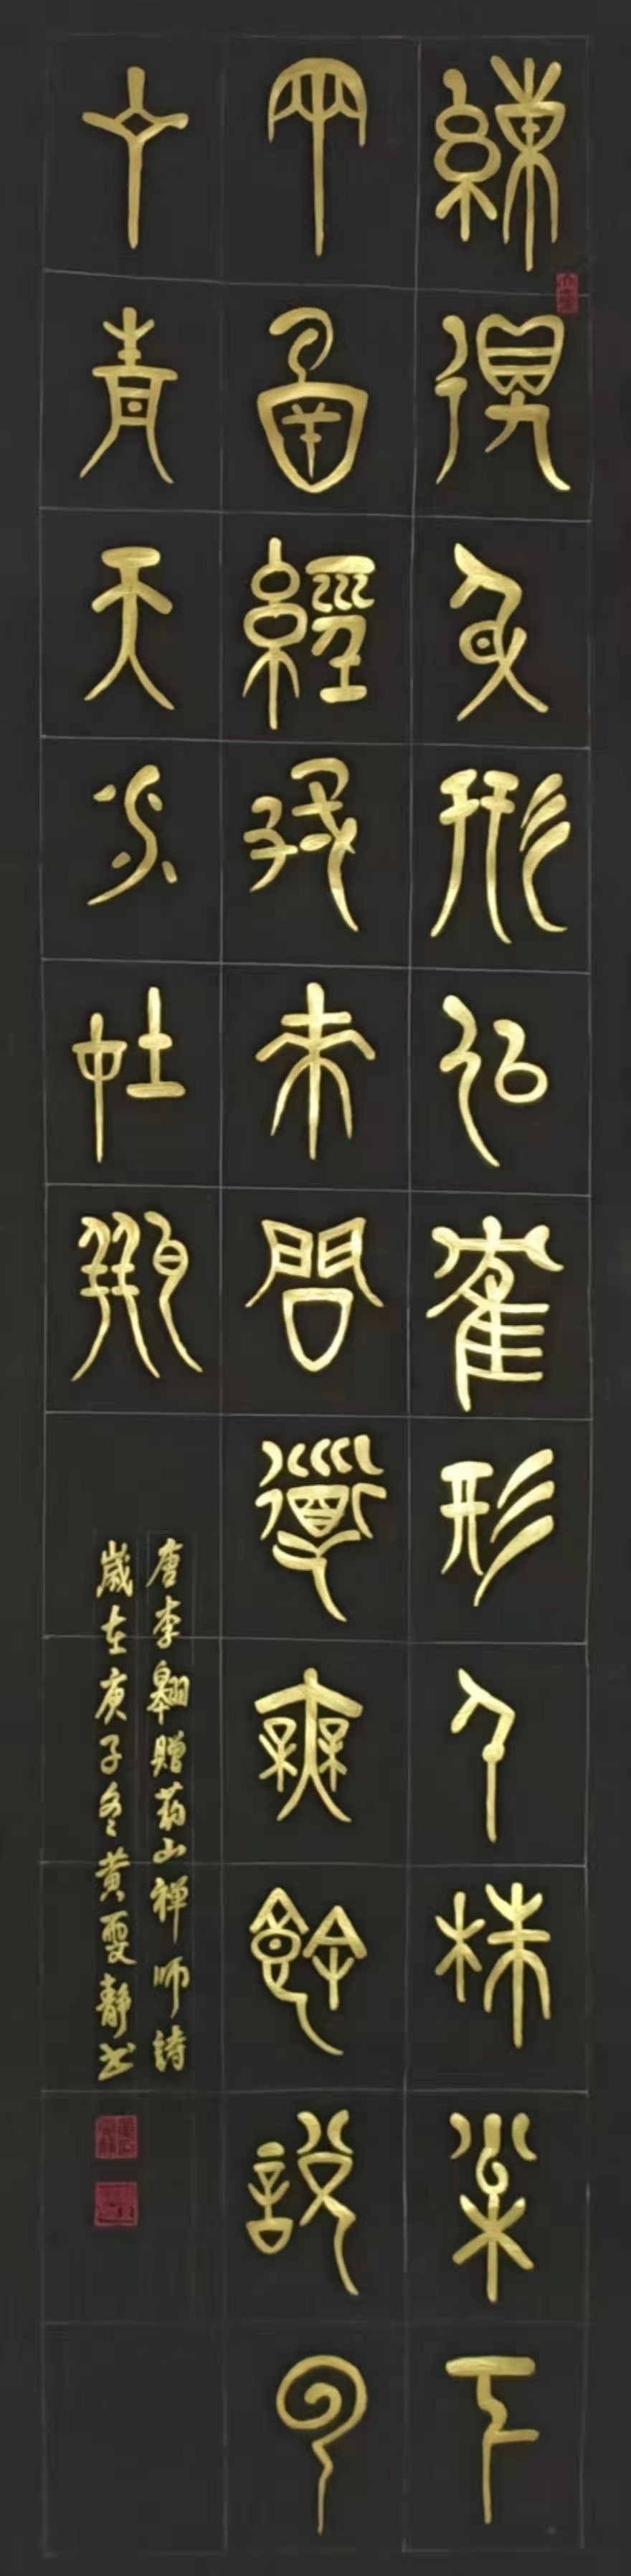 練得身形似鶴形千株松下
兩函經我來問道無餘說雲
在青天水在瓶
唐李翱贈药山禅師詩
歲在庚子冬黄雯靜书